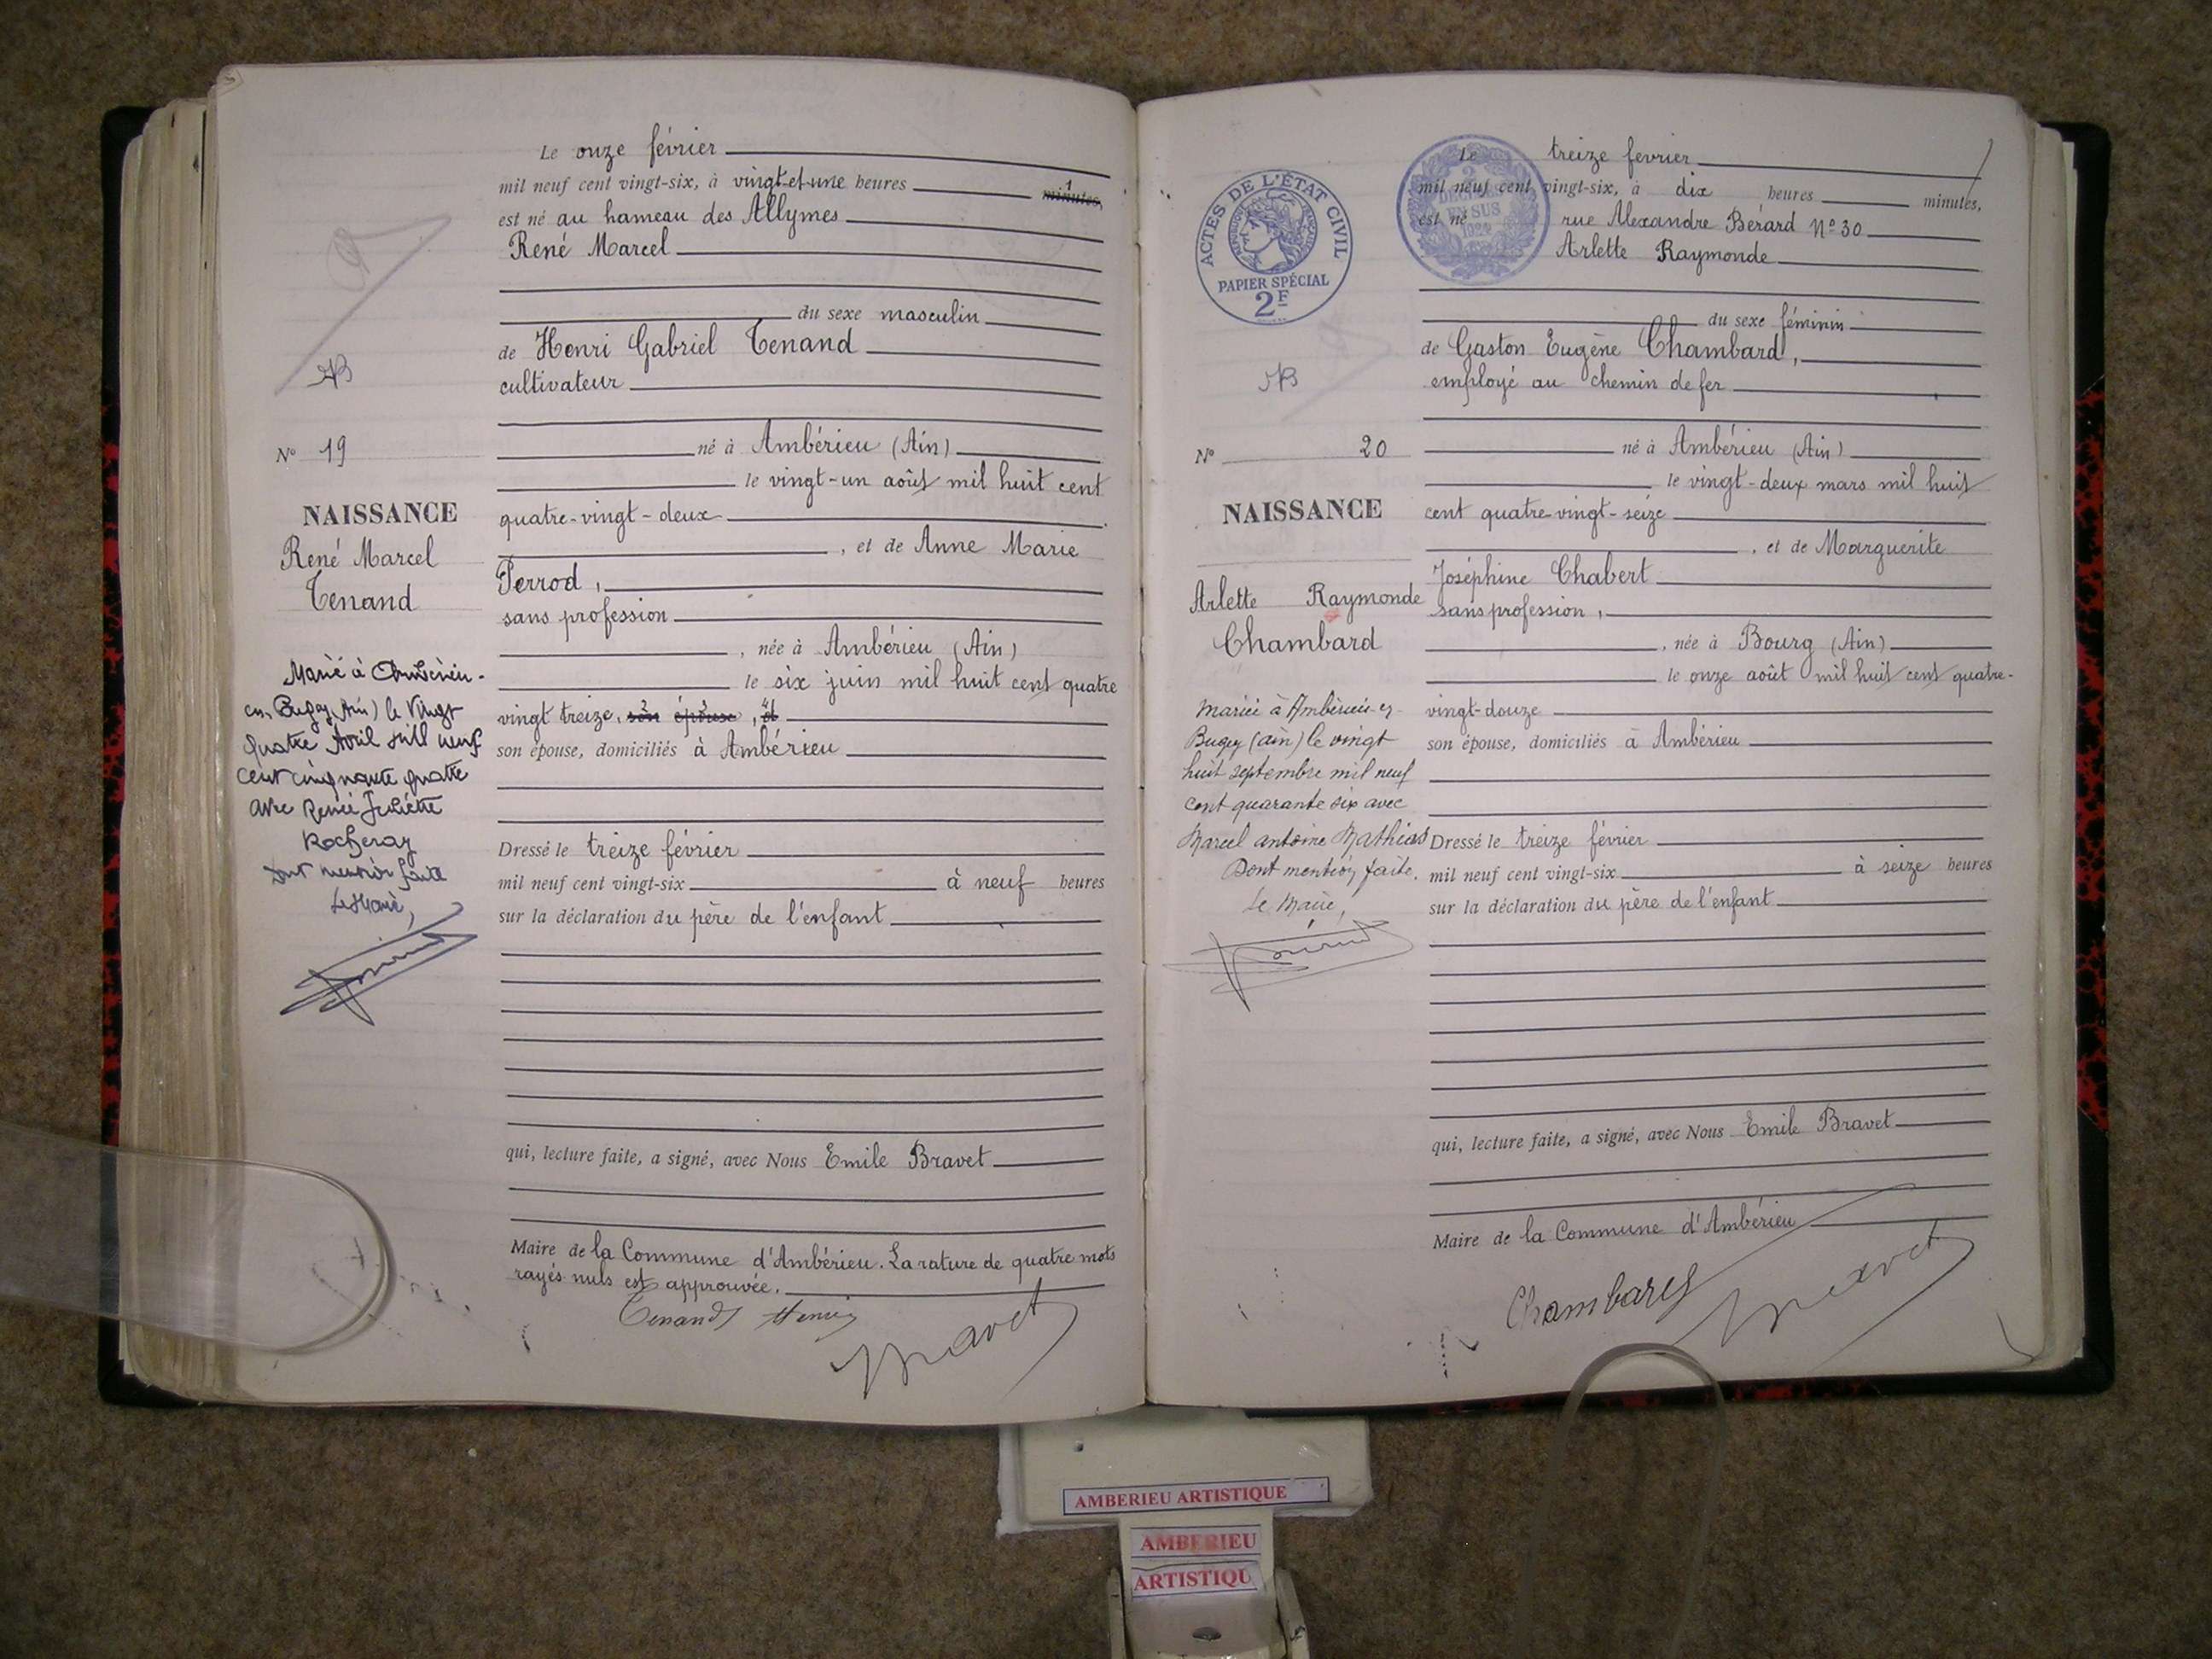 Le onze février
mil neuf cent vingt-six, à vingt-et-une heures minutes, 1
est né au hameau des Allymes
René Marcel
du sexe masculin
de Henri Gabriel Tenand
cultivateur
né à Ambérieu (Ain)
le vingt-un août mil huit cent
quatre-vingt-deux
, et de Anne Marie
Perrod,
sans profession
, née à Ambérieu (Ain)
le six juin mil huit cent quatre
vingt treize, son épouse, et
son épouse, domiciliés à Ambérieu
Dressé le treize février
mil neuf cent vingt-six à neuf heures
sur la déclaration du père de l'enfant
qui, lecture faite, a signé, avec Nous Emile Bravet
Maire de la Commune d'Ambérieu. La rature de quatre mots
rayés nuls est approuvée.
Tenand Henri
Bravet
AB
N° 19
NAISSANCE
René Marcel
Tenand
Marié à Ambérieu-
en Bugey (Ain) le Vingt
quatre Avril Mill neuf
cent cinquante quatre
avec Renée Juliette
Rocheray
Dont mention faite
Le Maire,
ACTES DE L'ÉTAT CIVIL
PAPIER SPÉCIAL
2F
2
DÉCIMES
EN SUS
1924
Le treize fevrier
mil neuf cent vingt-six, à dix heures minutes,
est né rue Alexandre Bérard N° 30
Arlette Raymonde
du sexe féminin
de Gaston Eugène Chambard,
employé au chemin de fer
né à Ambérieu (Ain)
le vingt-deux mars mil huit
cent quatre-vingt-seize
, et de Marguerite
Joséphine Chabert
sans profession,
, née à Bourg (Ain)
le onze août mil huit cent quatre-
vingt-douze
son épouse, domiciliés à Ambérieu
Dressé le treize février
mil neuf cent vingt-six à seize heures
sur la déclaration du père de l'enfant
qui, lecture faite, a signé, avec Nous Emile Bravet
Maire de la Commune d'Ambérieu
Chambard
Bravet
AB
N° 20
NAISSANCE
Arlette Raymonde
Chambard
Mariée à Ambérieu-en-
Bugey (ain) le vingt
huit septembre mil neuf
cent quarante six avec
Marcel antoine Mathias
Dont mention faite.
Le Maire,
AMBERIEU ARTISTIQUE
AMBERIEU
ARTISTIQU